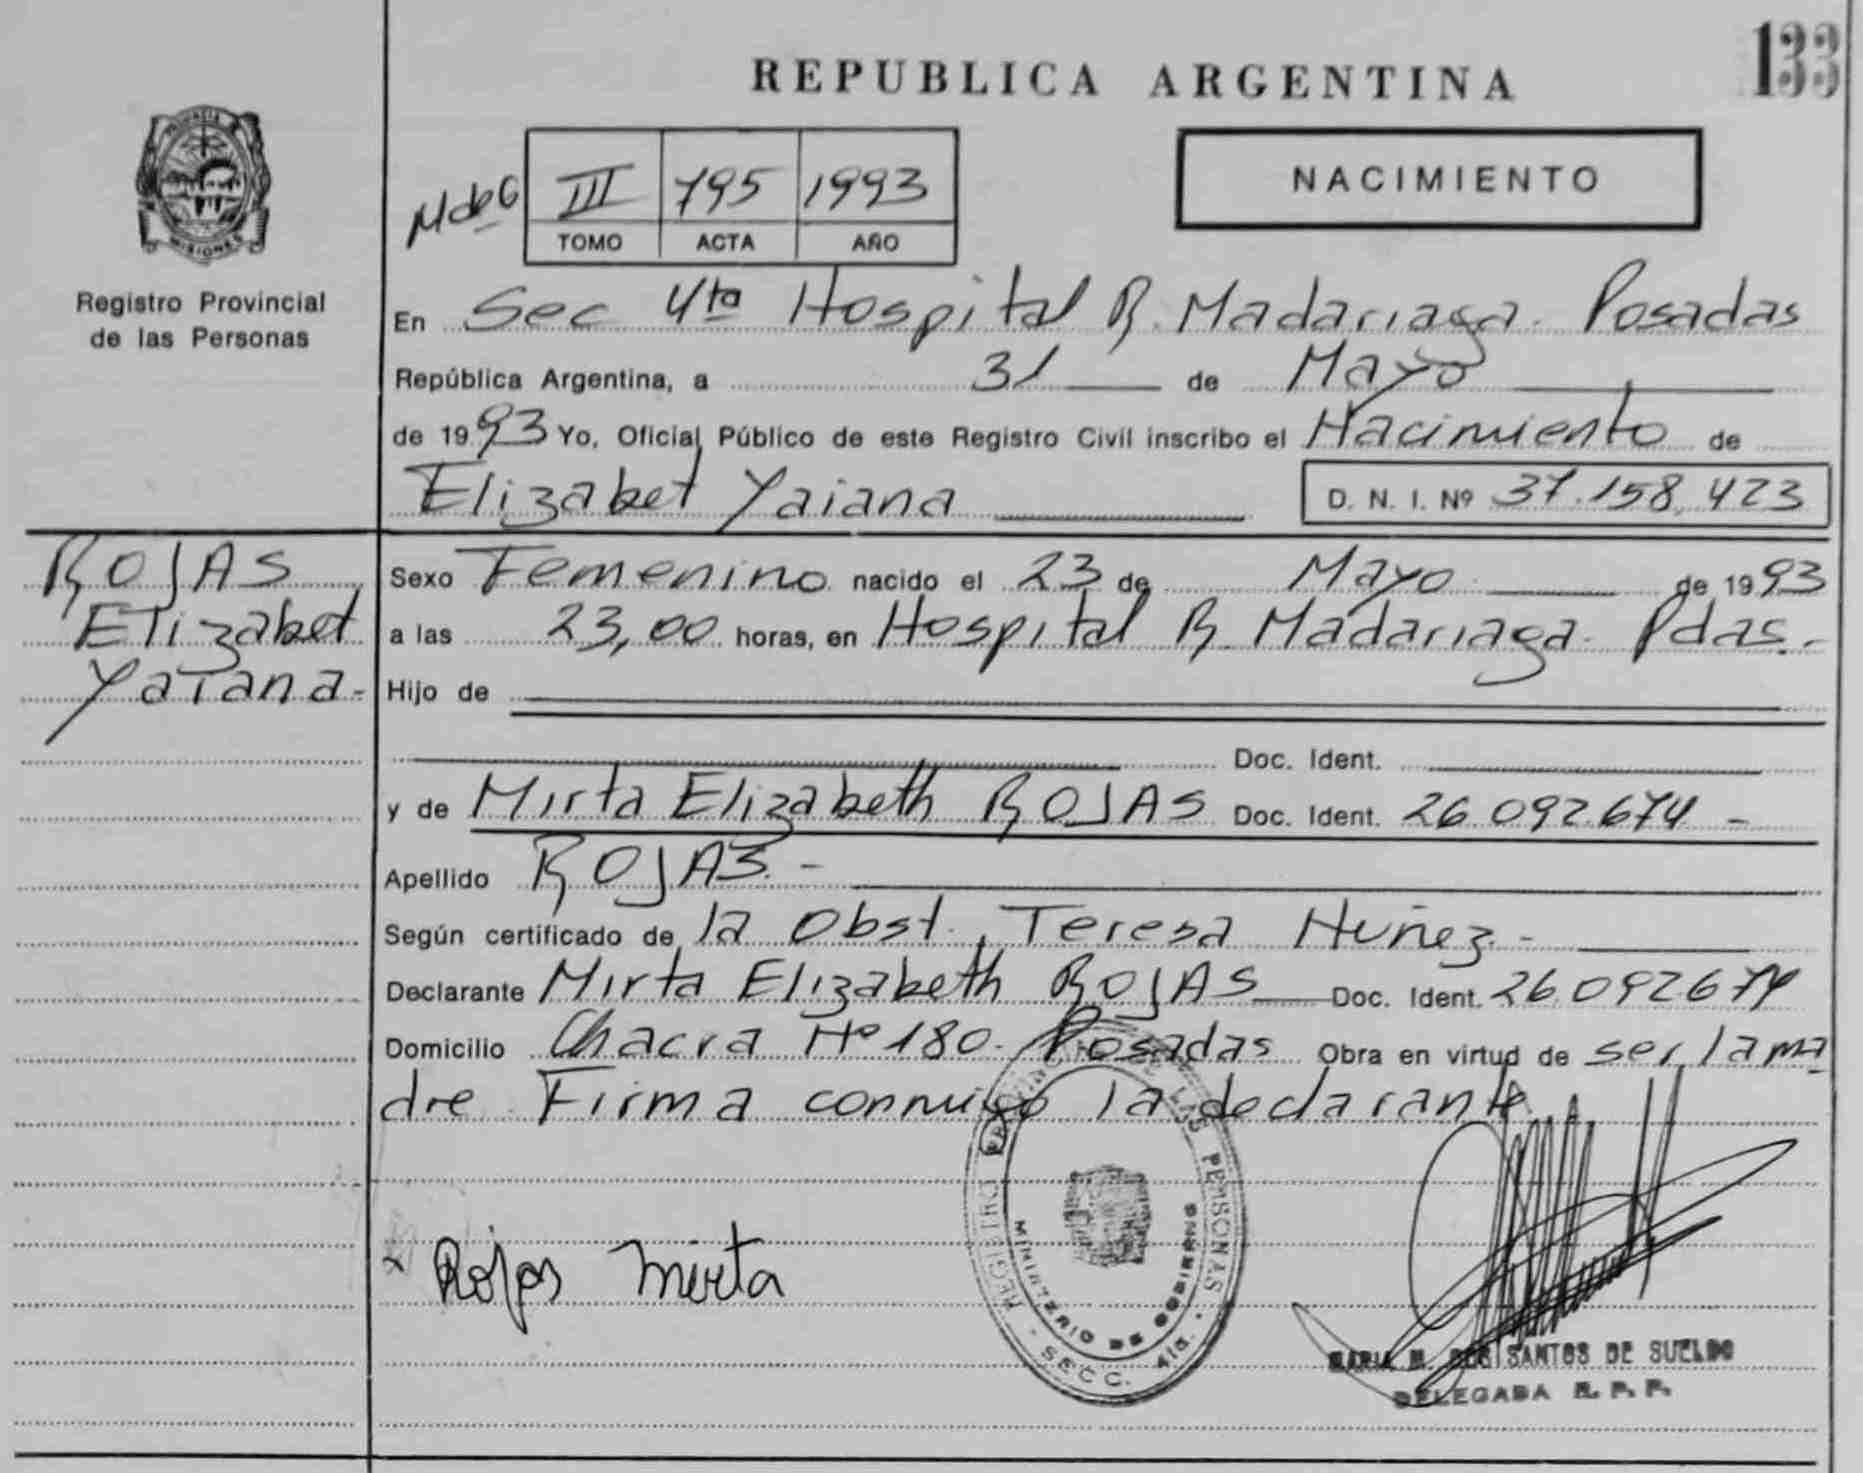 133
REPUBLICA ARGENTINA
PROVINCIA D
MISIONES
Registro Provincial
de las Personas
III 795 1993
TOMO ACTA AÑO
NACIMIENTO
En Sec 4ta Hospital R. Madariaga. Posadas
República Argentina, a 31 de Mayo
de 1993 Yo, Oficial Público de este Registro Civil inscribo el Nacimiento de
Elizabet Yaiana D. N. I. Nº 37.158.423
ROJAS
Elizabet
Yaiana-
Sexo Femenino nacido el 23 de Mayo de 1993
a las 23,00 horas, en Hospital R. Madariaga. Pdas.-
Hijo de
Doc. Ident.
y de Mirta Elizabeth ROJAS Doc. Ident. 26.092.674-
Apellido ROJAS.-
Según certificado de la Obst. Teresa Nuñez.-
Declarante Mirta Elizabeth ROJAS Doc. Ident. 26.092674
Domicilio Chacra Nº 180. Posadas Obra en virtud de ser la ma
dre Firma conmigo la declarante
x Rojas Mirta
REGISTRO PROVINCIAL DE LAS PERSONAS
MINISTERIO DE GOBIERNO
SECC. 4ta.
MARIA M. DOS SANTOS DE SUELDO
DELEGADA R. P. P.